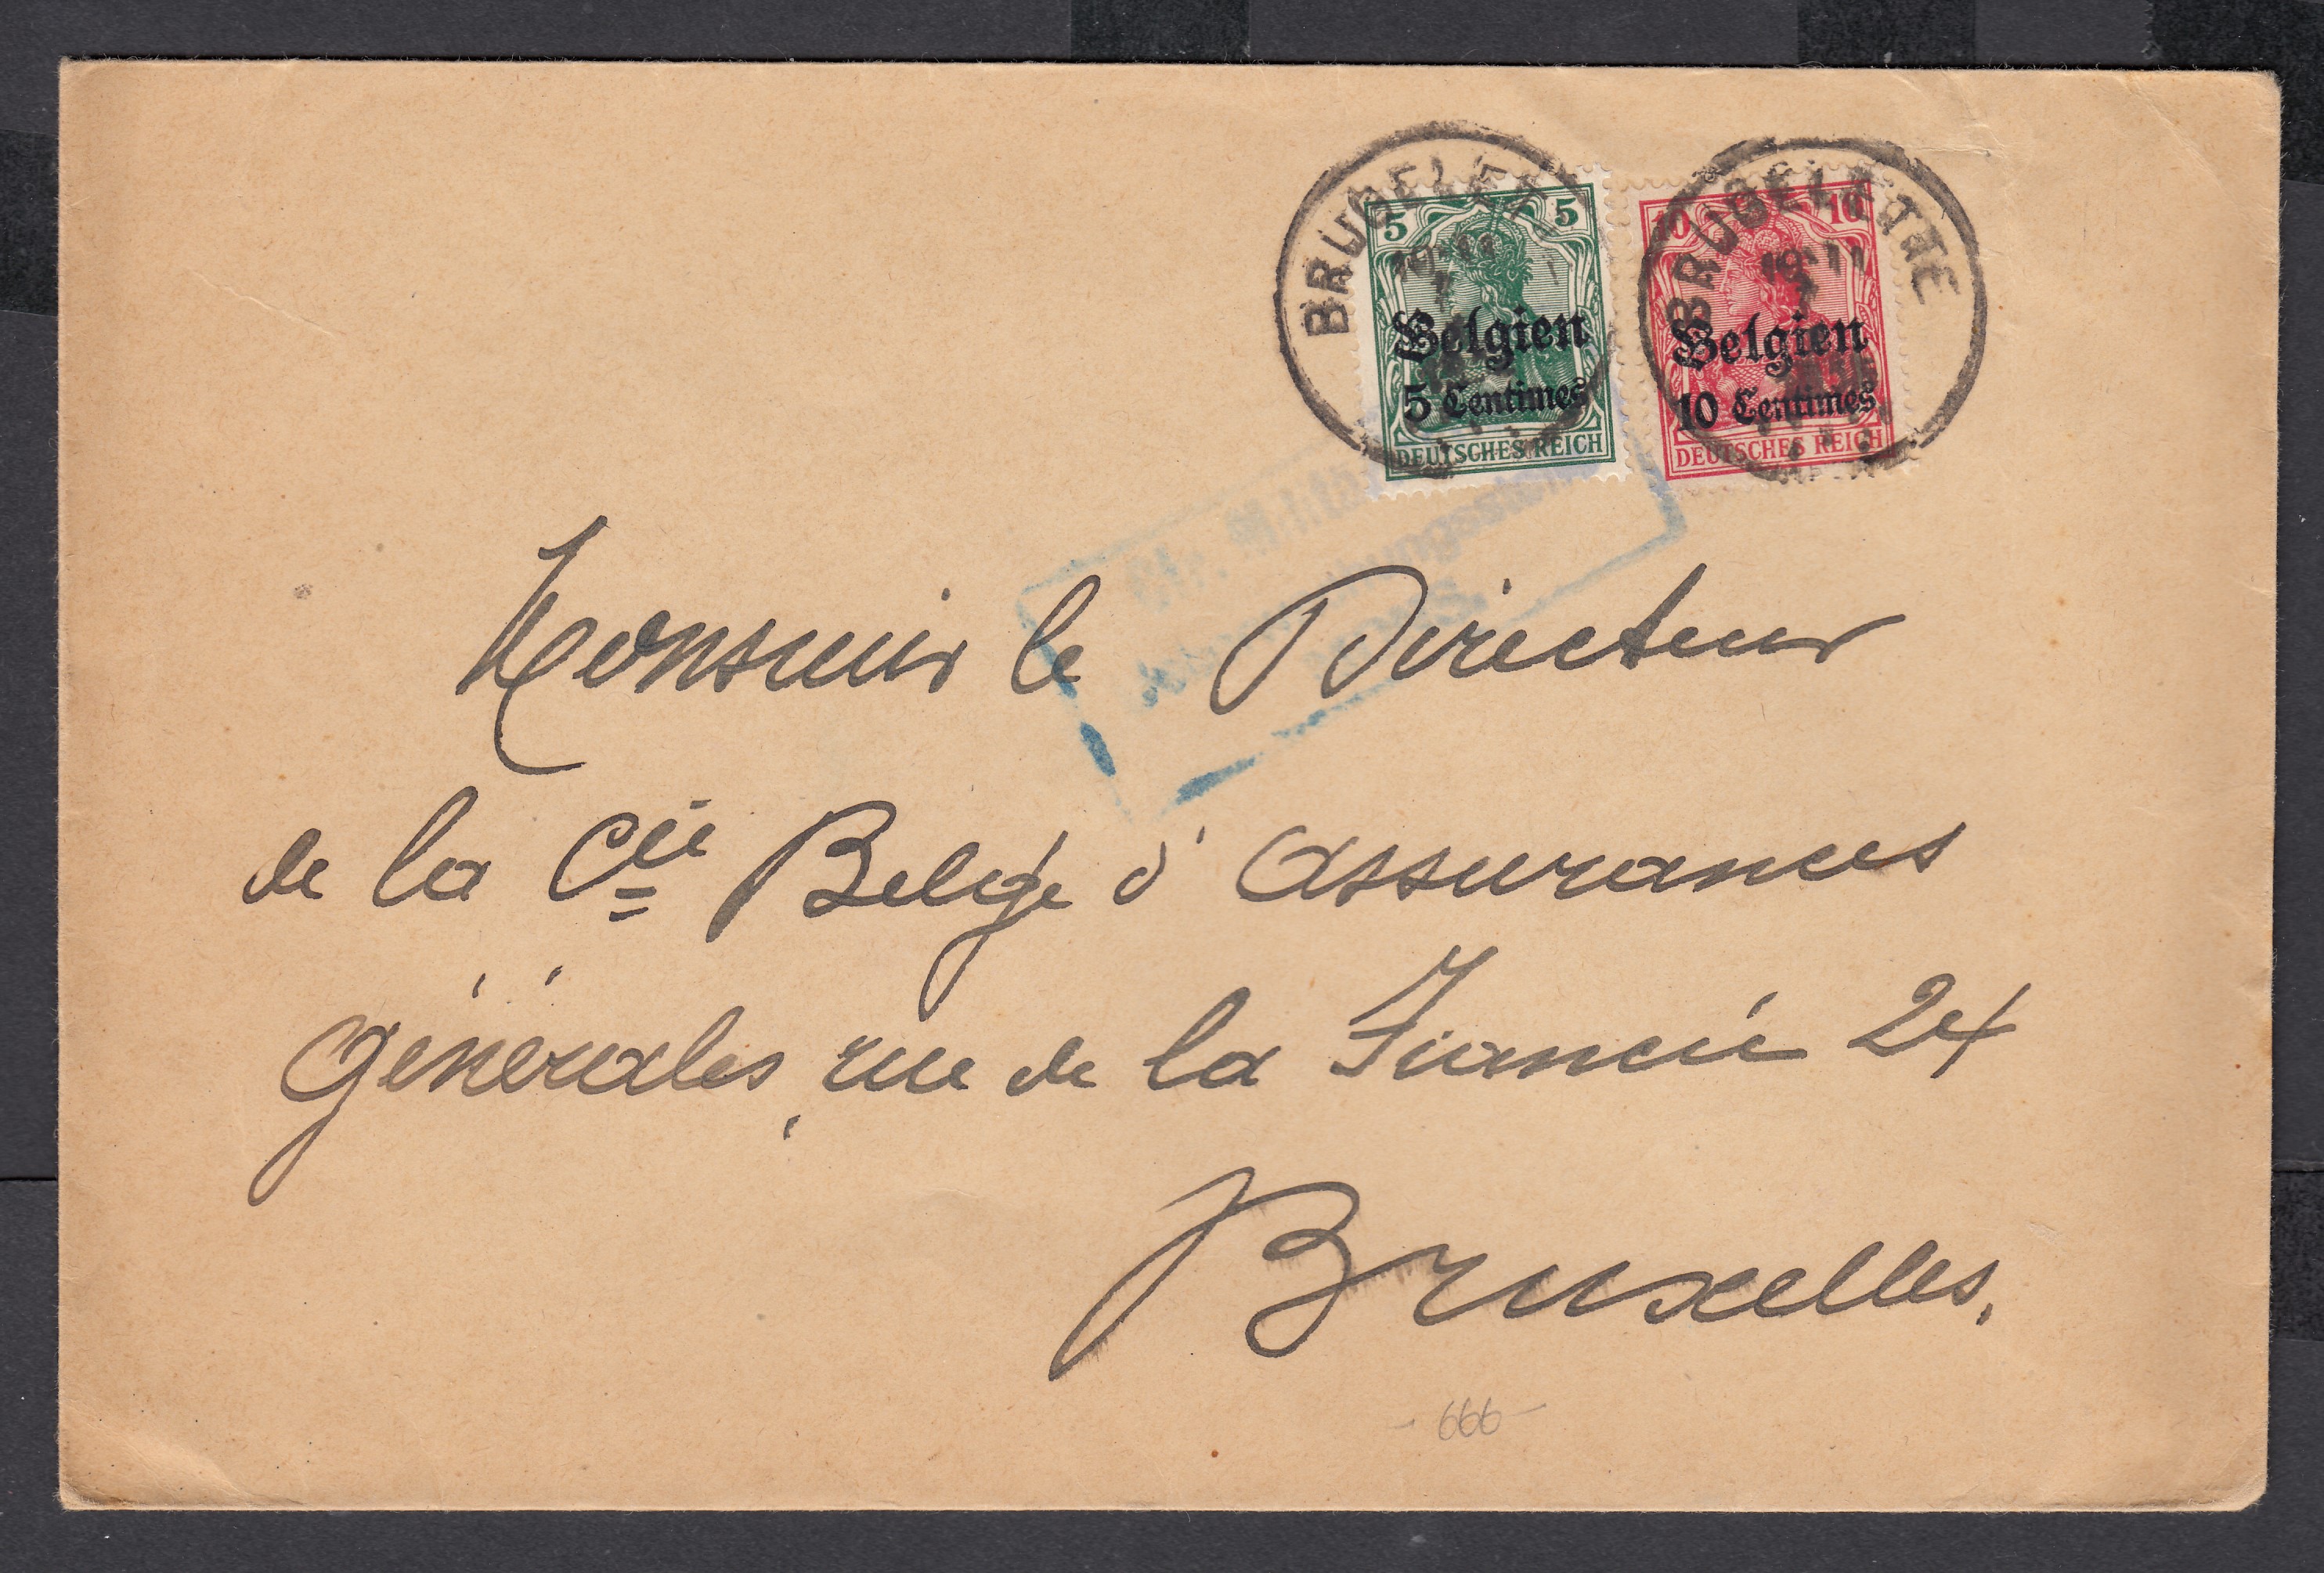 BRUGELETTE
BRUGELETTE
5 5
Belgien
5 Centimes
DEUTSCHES REICH
10 10
Belgien
10 Centimes
DEUTSCHES REICH
Monsieur le Directeur
de la Cie Belge d'assurances
Générales, rue de la Fiancée 24
Bruxelles.
- 666 -